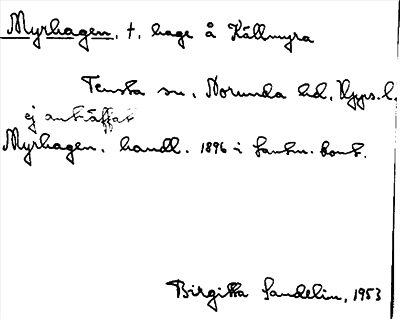 Myrhagen, †, hage å Källmyra
Tensta sn, Norunda hd, Upps. l.
ej anträffat
Myrhagen, handl. 1896 i Lantm. kont.
Birgitta Sandelin, 1953